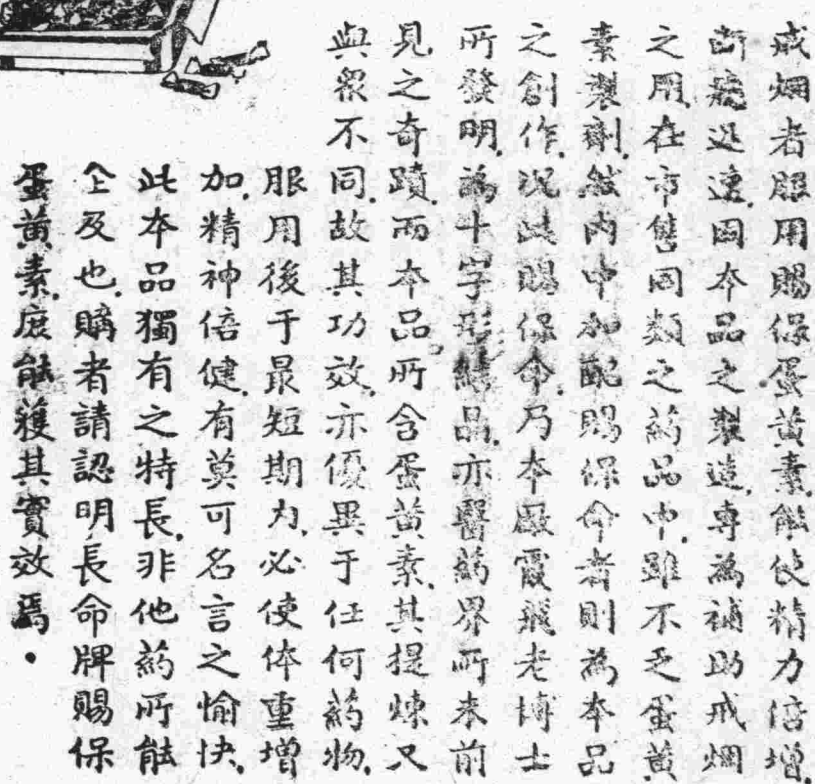 戒烟者服用賜保蛋黃素.能使精力倍增.
斷癮迅速.因本品之製造.專為補助戒烟
之用.在市售同類之葯品中.雖不乏蛋黃
素製劑.然內中加配賜保命者則為本品
之創作.况此賜保命.乃本厰霞飛老博士
所發明.為十字形結晶.亦醫葯界所未前
見之奇蹟.而本品所含蛋黃素.其提煉又
與眾不同.故其功效.亦優異于任何葯物.
服用後于最短期內.必使体重增
加.精神倍健.有莫可名言之愉快.
此本品獨有之特長.非他葯所能
企及也.購者請認明長命牌賜保
蛋黃素.庶能獲其實效焉.